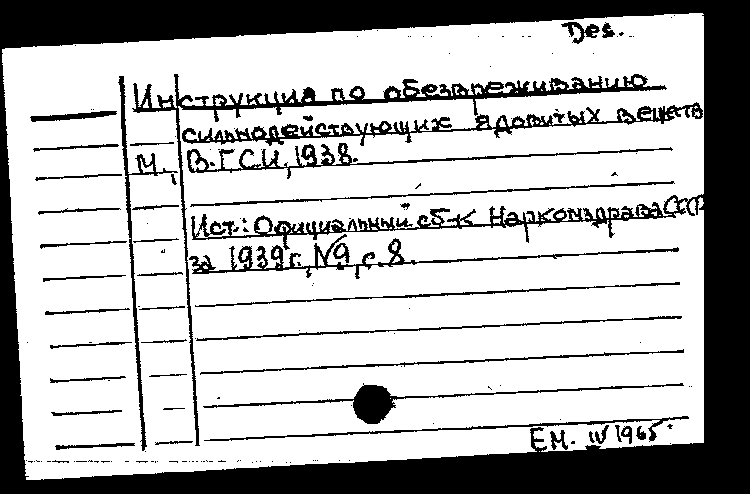 Des.
Инструкция по обезвреживанию
сильнодействующих ядовитых веществ
М., В.Г.С.И., 1938.
Ист.: Официальный сб-к Наркомздрава СССР
за 1939 г., №9, с. 8.
ЕМ. IV 1965